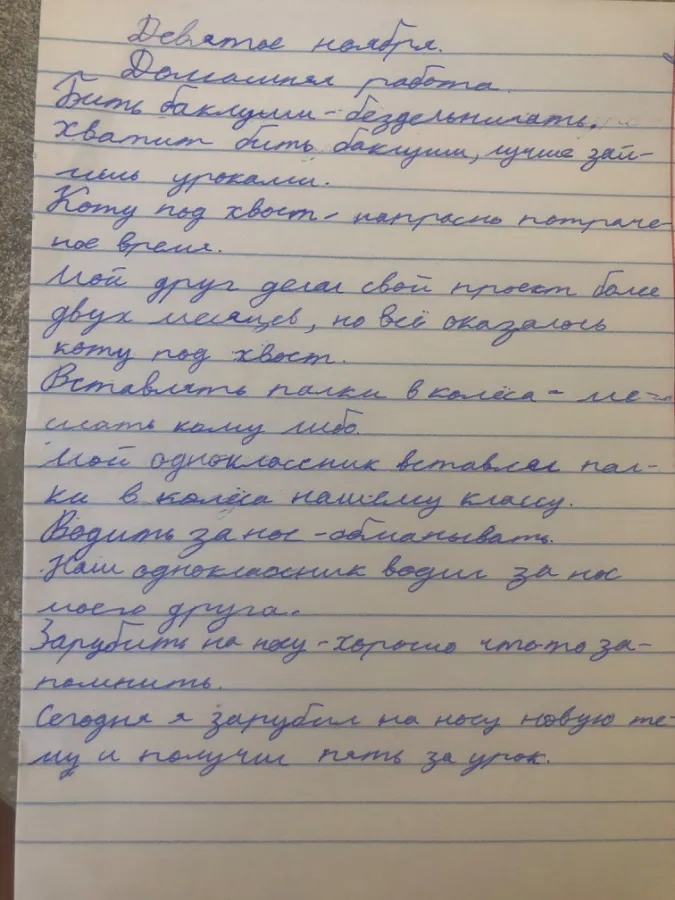 Девятое ноября.
Домашняя работа.
Бить баклуши - бездельничать.
Хватит бить баклуши, лучше зай-
мись уроками.
Коту под хвост - напрасно потраче-
ное время.
Мой друг делал свой проект более
двух месяцев, но всё оказалось
коту под хвост.
Вставлять палки в колёса - ме-
шать кому либо.
Мой одноклассник вставлял пал-
ки в колёса нашему классу.
Водить за нос - обманывать.
Наш одноклассник водил за нос
моего друга.
Зарубить на носу - хорошо что-то за-
помнить.
Сегодня я зарубил на носу новую те-
му и получил пять за урок.